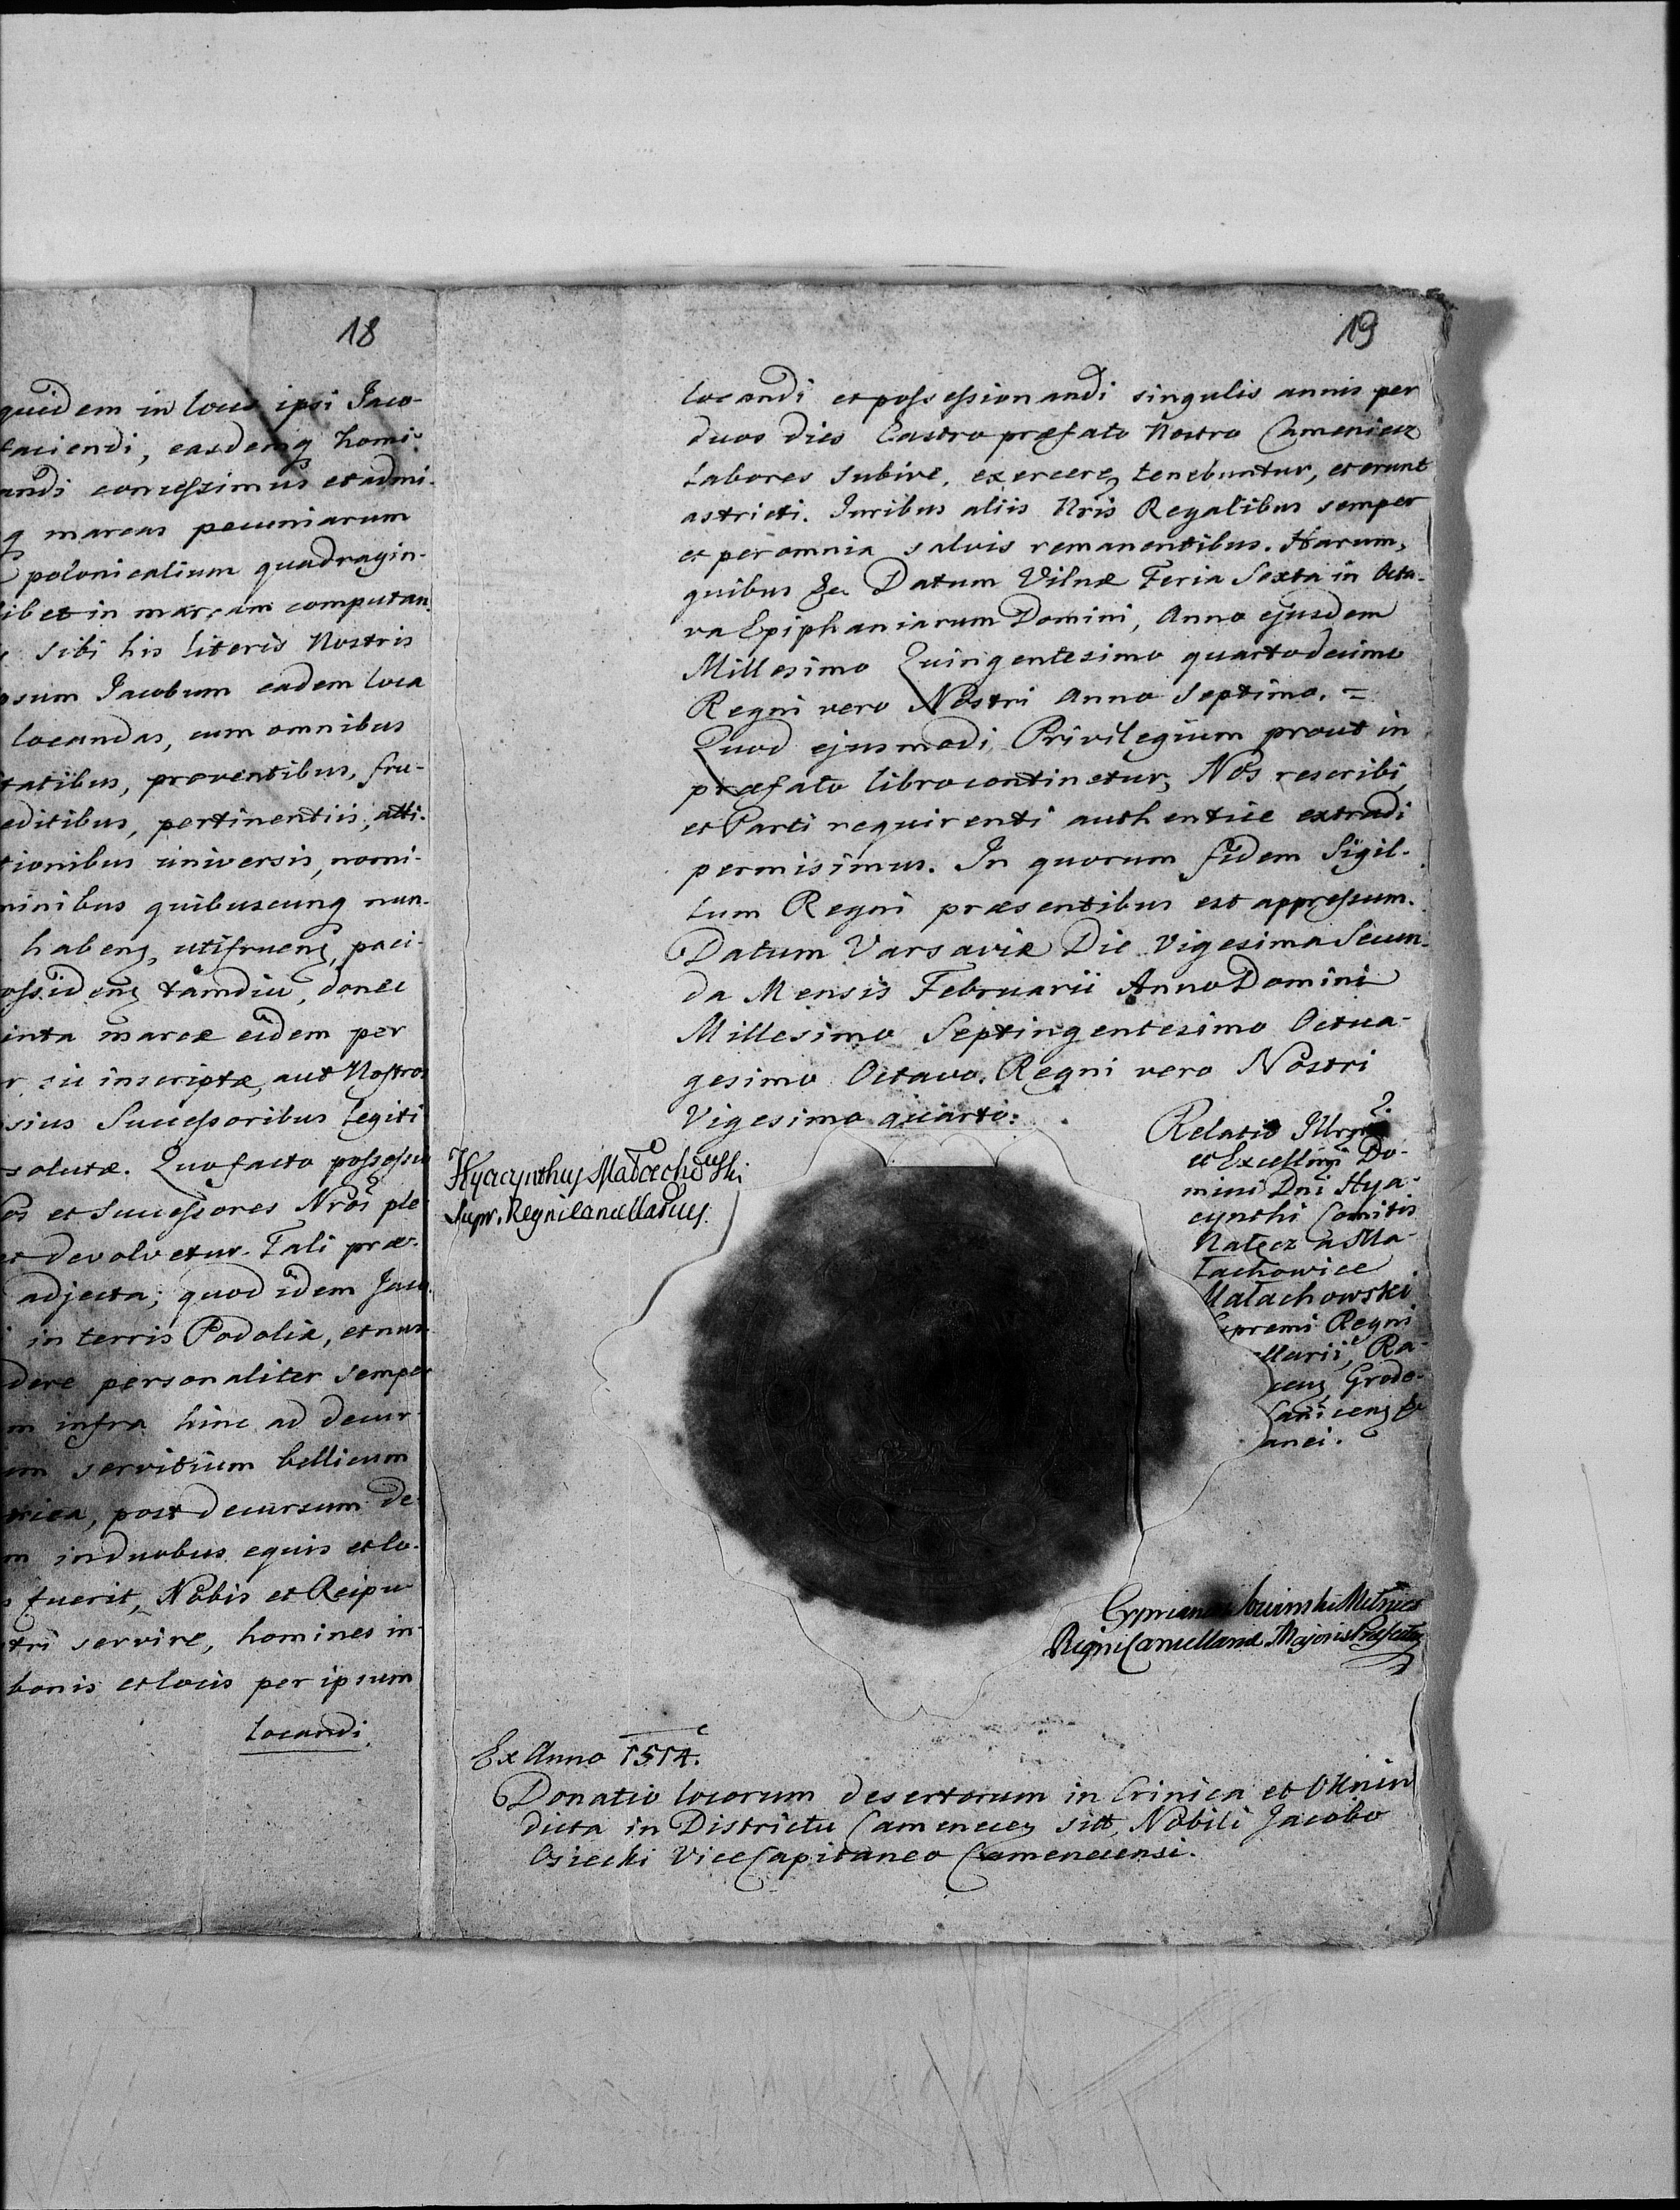 18
quidem in locis ipsi Jaco-
faciendi, easdemq homi-
andi concessimus et admi-
q marcas pecuniarum
polonicalium quadragin-
libet in marcam computan.
sibi his literis Nostris
psum Jacobum eadem loca
locandas, cum omnibus
tatibus, proventibus, fru-
editibus, pertinentiis, atti-
tionibus universis, nomi-
minibus quibuscunq nun-
habens, utifruens, paci-
ossidens tamdiu, donec
inta marcæ eidem per
r sic inscriptæ, aut Nostros
sius Successoribus legiti
solutæ. Quo facto possessio
os et Successores Nros ple
et devolvetur. Tali præ-
adjecta; quod idem Jaco
in terris Podoliæ, et nun
dere personaliter semper
m infra hinc ad decur-
um servitium bellicum
trica, post decursum de-
m in duobus equis et lo-
s fuerit, Nobis et Reipu
tri servire, homines in
bonis et locis per ipsum
locandi
19
locandi et possessionandi singulis annis per
duos dies Castro præfato Nostro Camenicz
labores subire, exercereq tenebuntur, et erunt
astricti. Juribus aliis Nris Regalibus semper
et per omnia salvis remanentibus. Harum,
quibus &c. Datum Vilnæ Feria Sexta in Octa-
va Epiphaniarum Domini, Anno ejusdem
Millesimo Quingentesimo quartodecimo
Regni vero Nostri Anno Septimo. =
Quod ejusmodi Privilegium prout in
præfato libro continetur, Nos rescribi
et Parti requirenti authentice extradi
permisimus. In quorum fidem Sigil-
lum Regni præsentibus est appressum.
Datum Varsaviæ Die Vigesima Secun-
da Mensis Februarii Anno Domini
Millesimo Septingentesimo Octua-
gesimo Octavo. Regni vero Nostri
Vigesimo quarto.
Hyacynthus Małachowski
Supr. Regni Cancellarius
Relatio Illrmi
et Excellmi Do-
mini Dni Hya-
cynthi Comitis
Nałęcz a Ma-
łachowice
Małachowski
upremi Regni
ellarii, Ra-
cens, Grode-
Sanicens &
anei.
Cyprianus Metrices
Regni Cancellariæ Majoris Præfectus
Ex Anno 1514.
Donatio locorum desertorum in Crinica et Oknin
dicta in Districtu Camenecen sitt, Nobili Jacobo
Osiecki ViceCapitaneo Camenecensi.